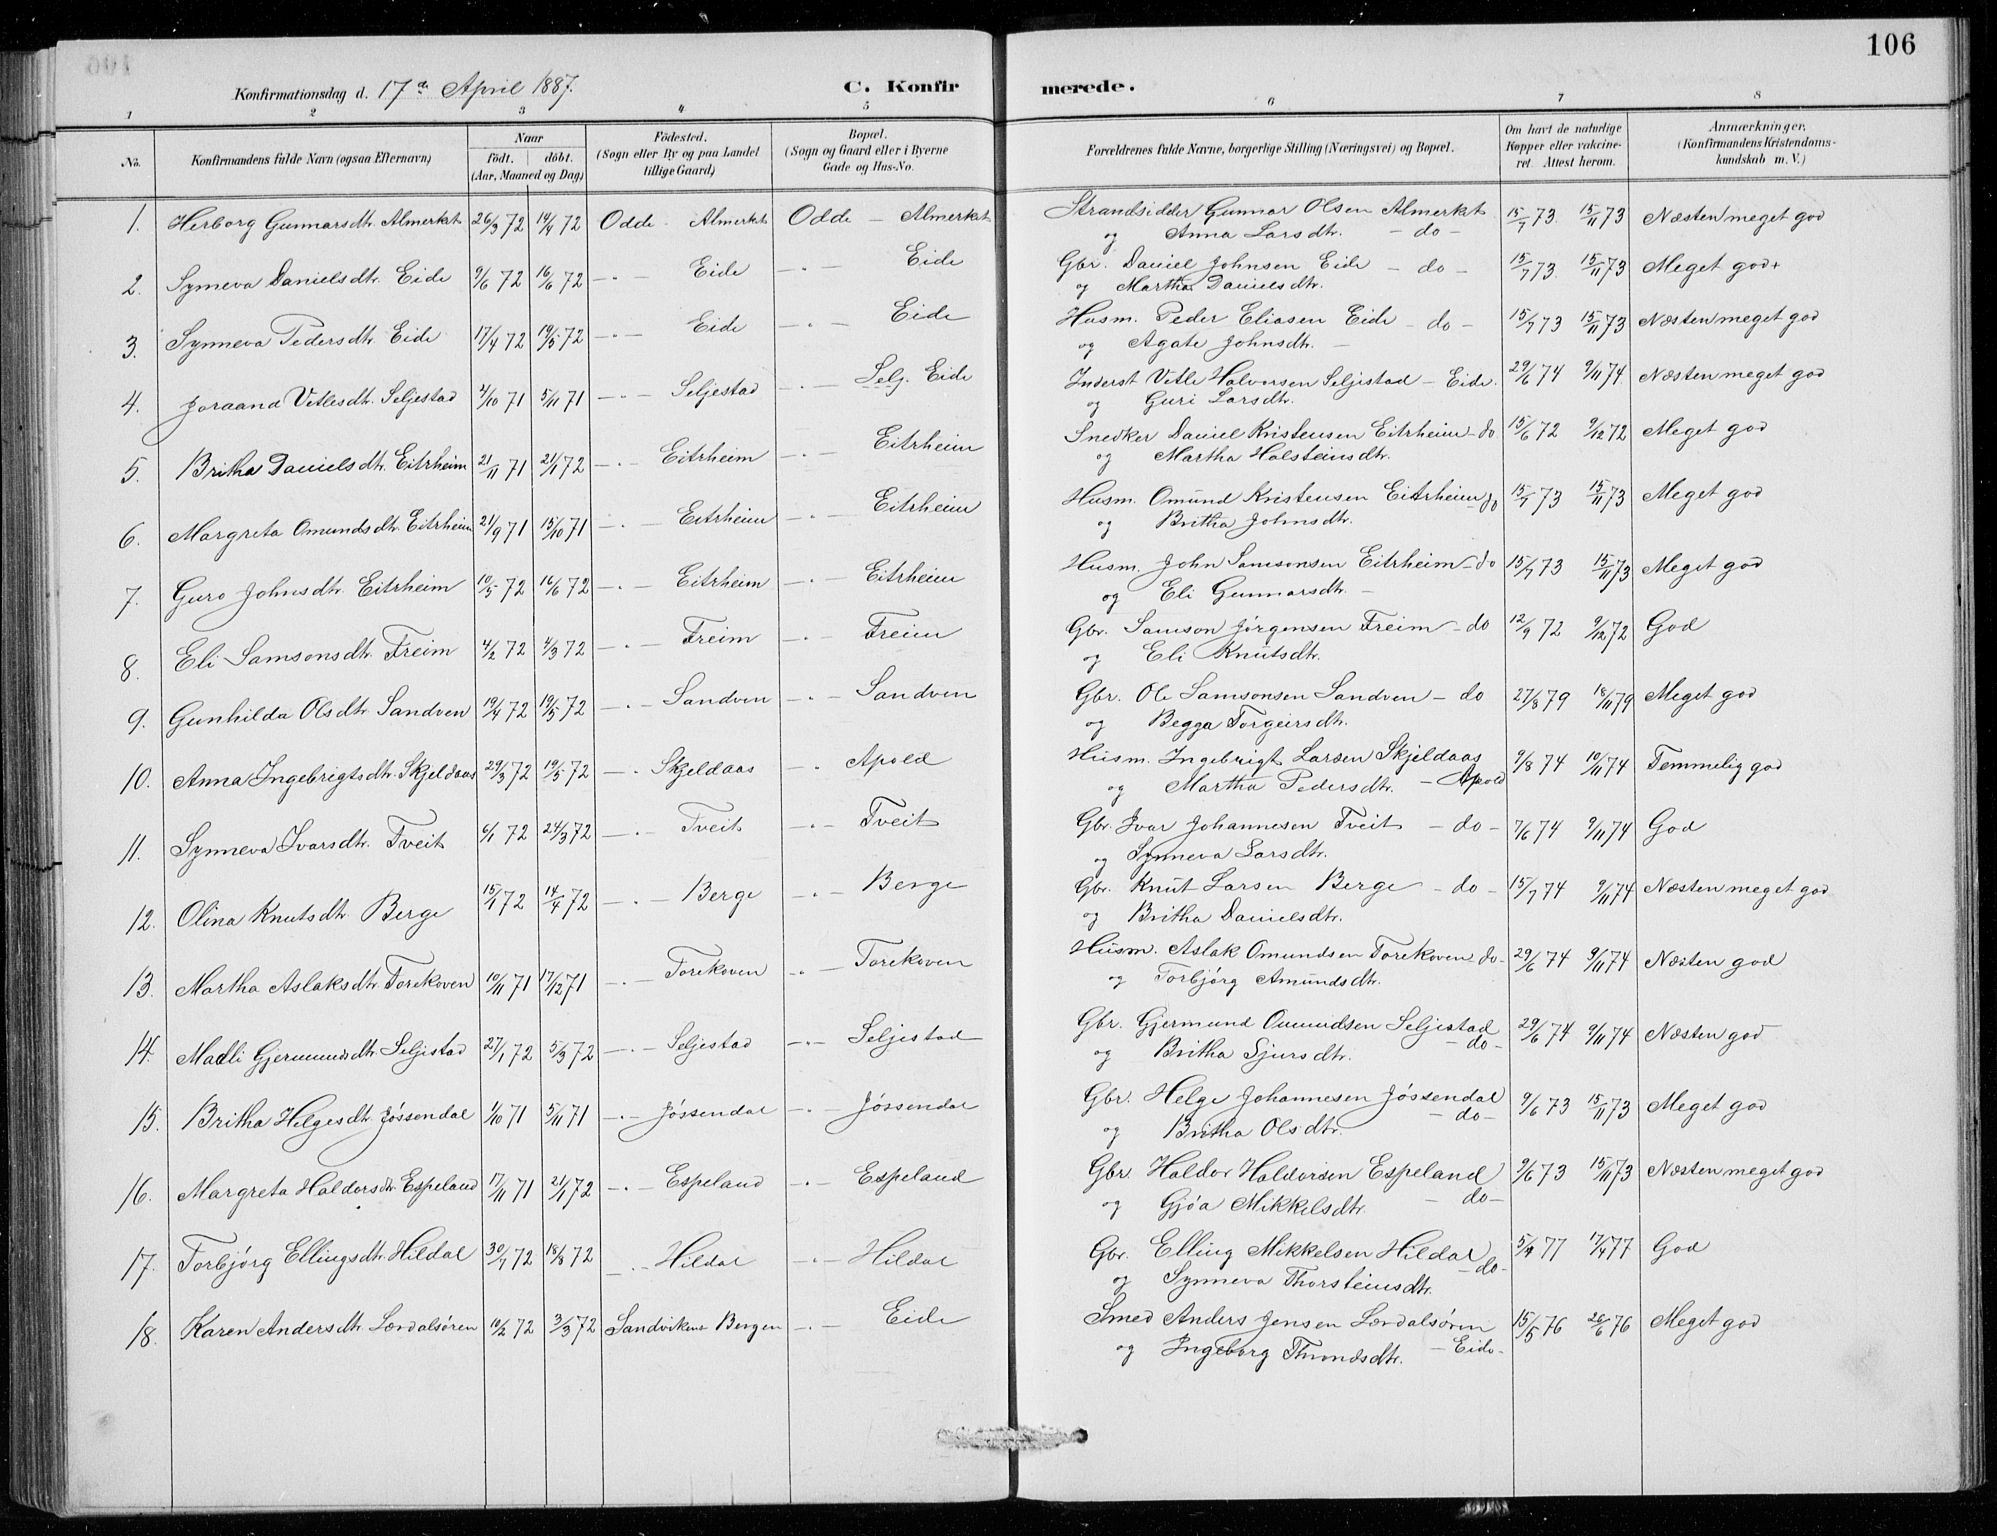 106
Konfirmationsdag d. 17de April 1887. C. Konfirmerede.
1 2 3 4 5 6 7 8
No. Konfirmandens fulde Navn (ogsaa Efternavn) Naar födt. döbt. (Aar, Maaned og Dag) Födested. (Sogn eller By og paa Landet tillige Gaard) Bopæl. (Sogn og Gaard eller i Byerne Gade og Hus-No. Forældrenes fulde Navne, borgerlige Stilling (Næringsvei) og Bopæl. Om havt de naturlige Kopper eller vakcineret. Attest herom. Anmærkninger. (Konfirmandens Kristendomskundskab m. V.)
1. Herborg Gunnarsdtr. Almerket 26/3 72 14/4 72 Odde - Almerket Odde - Almerket Strandsidder Gunnar Olsen Almerket 15/7 73 15/11 73 Næsten meget god
og Anna Larsdtr. - do -
2. Synneva Danielsdtr. Eide 9/6 72 16/6 72 -"- Eide -"- Eide Gbr. Daniel Johnsen Eide - do - 15/7 73. 15/11 73 Meget god+
og Martha Danielsdtr.
3. Synneva Pedersdtr. Eide 17/4 72 19/5 72 -"- Eide -"- Eide Husm. Peder Eliasen Eide - do - 15/7 73 15/11 73 Næsten meget god
og Agate Johnsdtr. -
4. Joraand Vetlesdtr. Seljestad 2/10 71 5/11 71 -"- Seljestad -"- Selj. Eide Inderst Vetle Halvorsen Seljestad - Eide. 29/6 74 9/11 74 Næsten meget god
og Guri Larsdtr.
5. Britha Danielsdtr. Eitrheim 21/11 71 21/1 72 -"- Eitrheim -"- Eitrheim Snedker Daniel Kristensen Eitrheim - do 15/6 72 9/12 72 Meget god
og Martha Holsteinsdtr.
6. Margreta Omundsdtr. Eitrheim 21/9 71 15/10 71 -"- Eitrheim -"- Eitrheim Husm. Omund Kristensen Eitrheim - do 15/7 73 15/11 73 Meget god
og Britha Johnsdtr.
7. Guro Johnsdtr. Eitrheim 10/5 72 16/6 72 -"- Eitrheim -"- Eitrheim Husm. John Samsonsen Eitrheim - do 15/7 73 15/11 73 Meget god
og Eli Gunnarsdtr. -
8. Eli Samsonsdtr. Freim 4/2 72 4/3 72 -"- Freim -"- Freim Gbr. Samson Jørgensen Freim - do 12/9 72 9/12 72 God
og Eli Knutsdtr.
9. Gunhilda Olsdtr. Sandven 19/4 72 19/5 72 -"- Sandven -"- Sandven Gbr. Ole Samsonsen Sandven - do 27/8 79 18/11 79 Meget god
og Begga Torgeirsdtr.
10. Anna Ingebrigtsdtr. Skjeldaas 29/3 72 19/5 72 -"- Skjeldaas -"- Apold Husm. Ingebrigt Larsen Skjeldaas 9/8 74 10/11 74 Temmelig god
og Martha Pedersdtr. - Apold
11. Synneva Ivarsdtr. Tveit 6/1 72 24/3 72 -"- Tveit -"- Tveit Gbr. Ivar Johannesen Tveit - do - 7/6 74 9/11 74 God
og Synneva Larsdtr.
12. Olina Knutsdtr. Berge 15/1 72 14/4 72 -"- Berge -"- Berge Gbr. Knut Larsen Berge - do - 15/7 74 9/11 74 Næsten meget god
og Britha Danielsdtr.
13. Martha Aslaksdtr. Torekoven 10/11 71 17/12 71 -"- Torekoven -"- Torekoven Husm. Aslak Omundsen Torekoven do - 29/6 74 9/11 74 Næsten god
og Torbjørg Amundsdtr.
14. Madli Gjermundsdtr. Seljestad 27/1 72 5/3 72 -"- Seljestad -"- Seljestad Gbr. Gjermund Omundsen Seljestad 29/6 74 9/11 74 Næsten god
og Britha Sjursdtr. - do -
15. Britha Helgesdtr. Jøssendal 1/10 71 5/11 71 -"- Jøssendal -"- Jøssendal Gbr. Helge Johannesen Jøssendal 9/6 73 15/11 73 Meget god
og Britha Olsdtr. - do -
16. Margreta Haldorsdtr. Espeland 17/11 71 21/1 72 -"- Espeland -"- Espeland Gbr. Haldor Haldorsen Espeland 9/6 73 15/11 73 Næsten meget god
og Gjøa Mikkelsdtr. - do -
17. Torbjørg Ellingsdtr. Hildal 30/7 72 18/8 72 -"- Hildal -"- Hildal Gbr. Elling Mikkelsen Hildal 5/4 77 17/4 77 God
og Synneva Thorsteinsdtr. - do -
18. Karen Andersdtr. Lærdalsøren 10/2 72 3/3 72 Sandviken Bergen -"- Eide Smed Anders Jensen Lærdalsøren 15/5 76 26/6 76 Meget god
og Ingeborg Throndsdtr. - Eide -